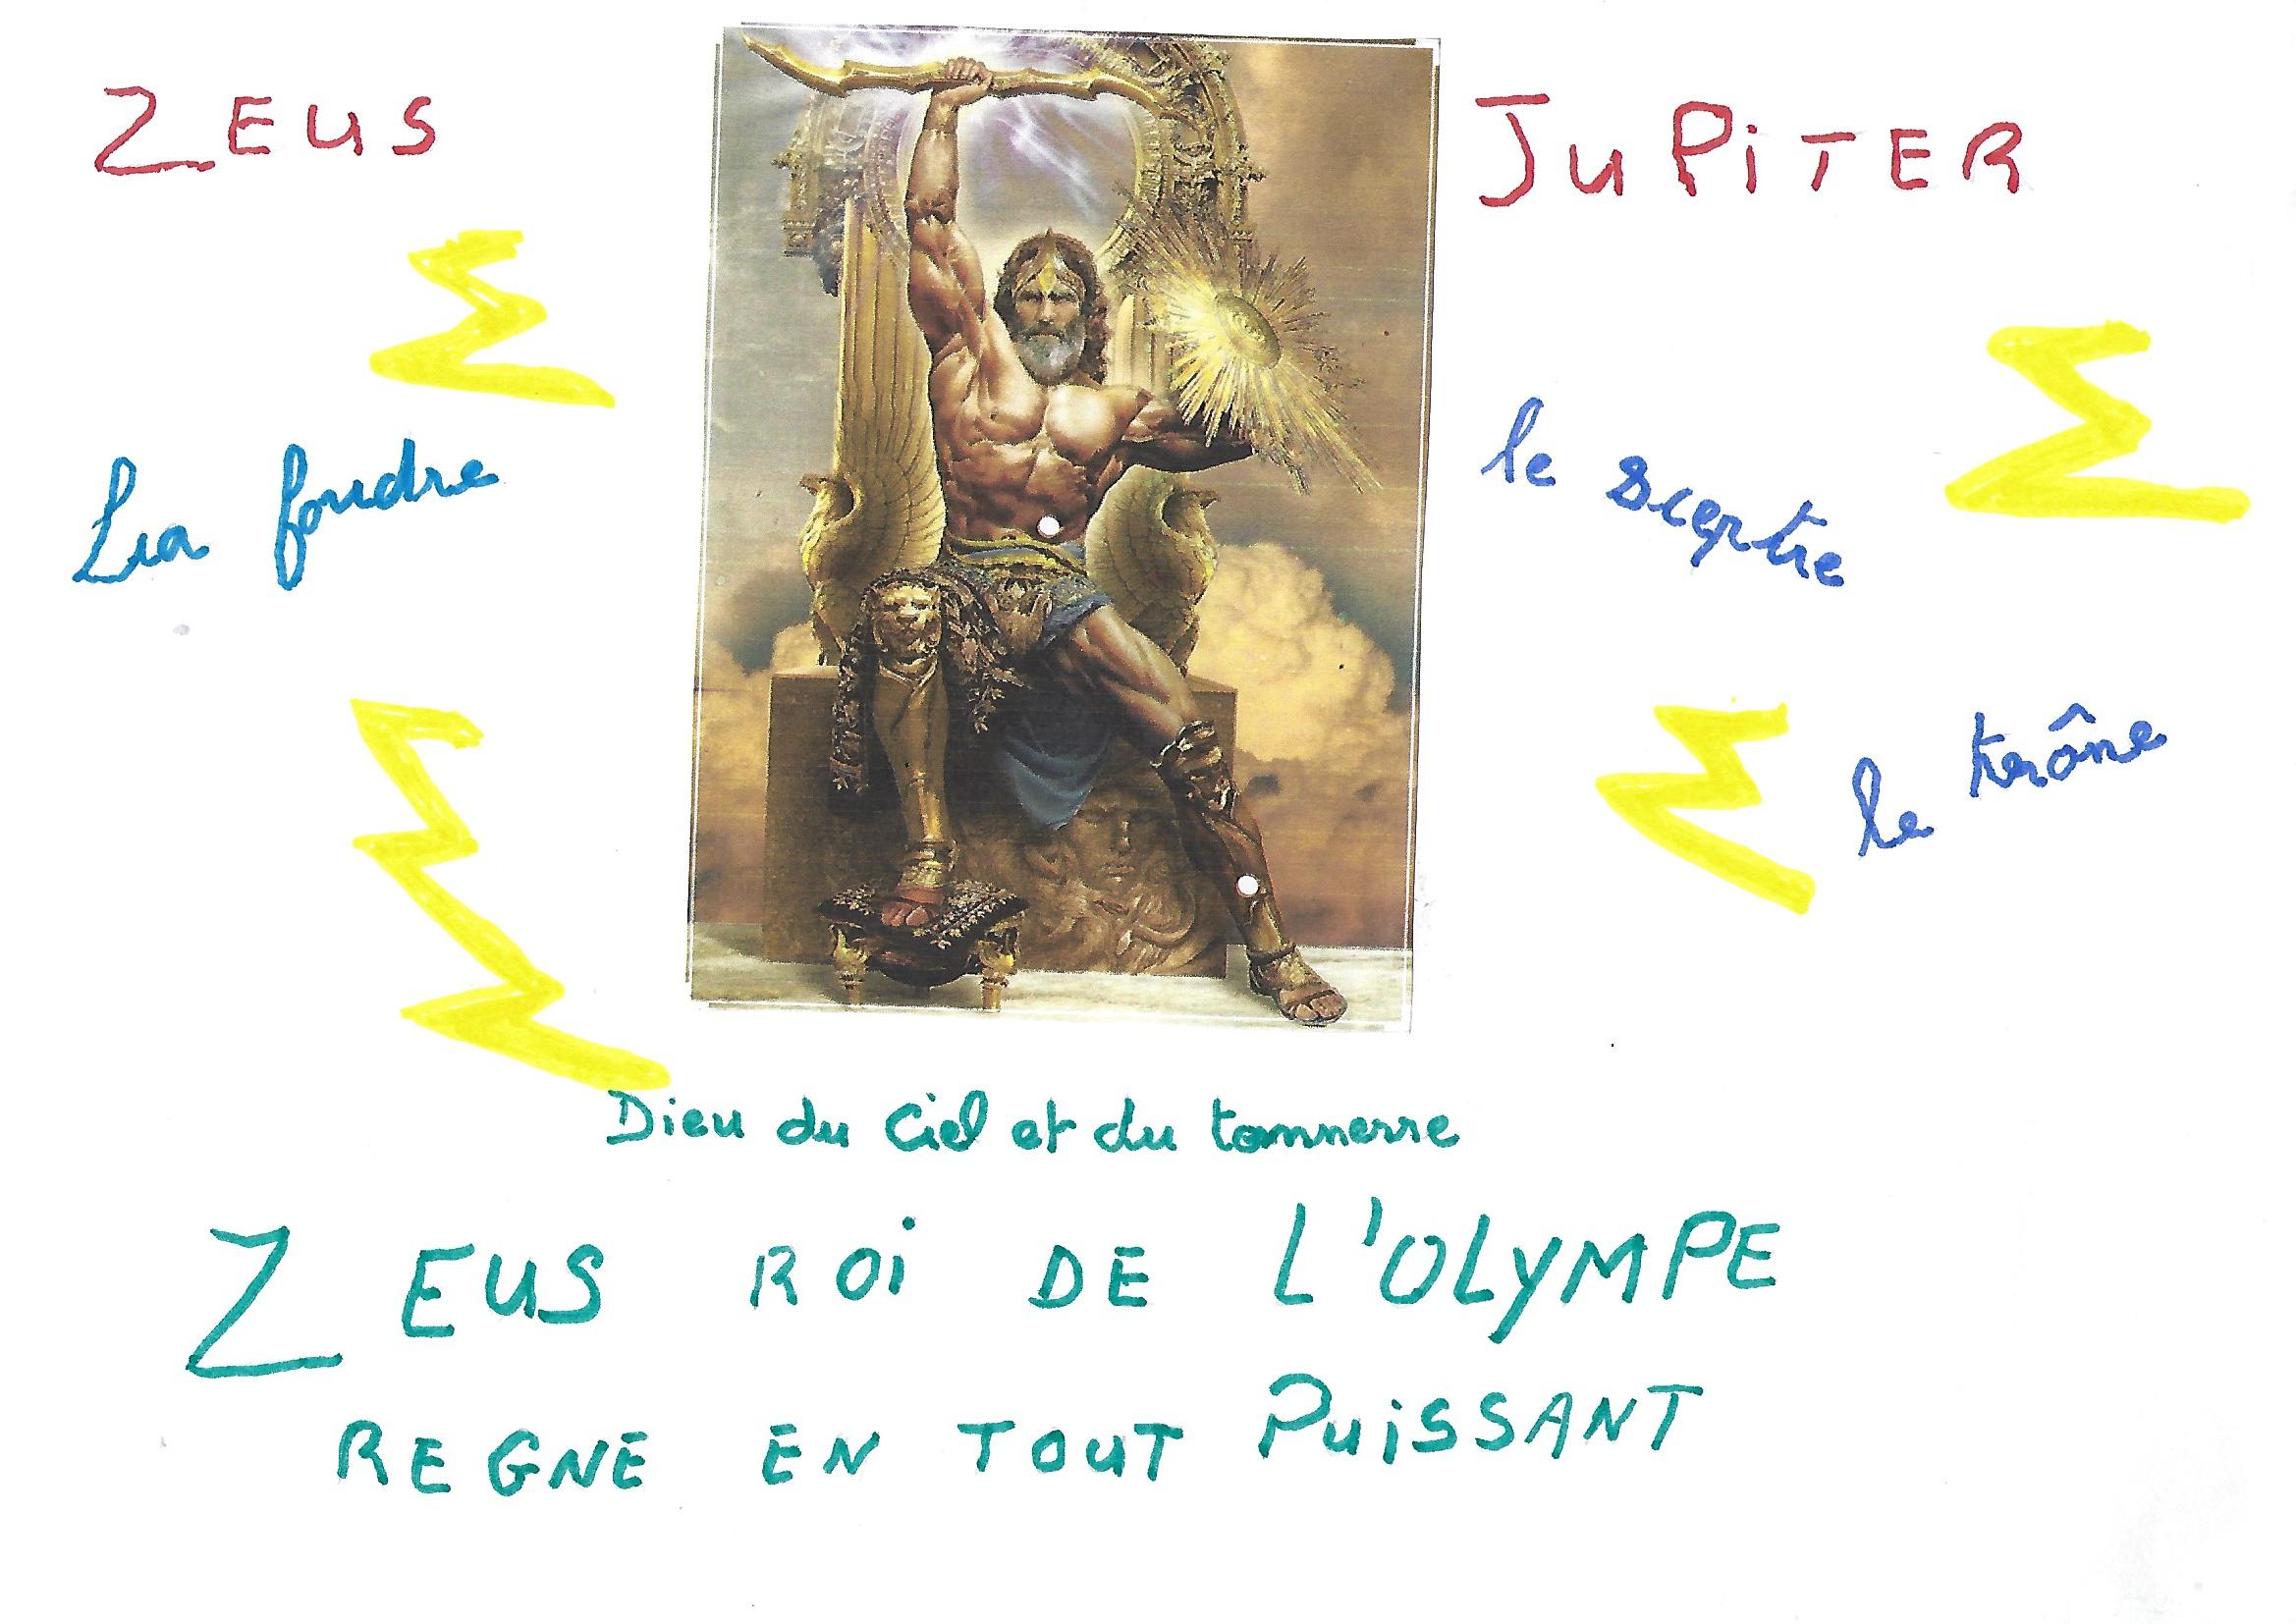 ZEUS
JUPITER
La foudre
le sceptre
le trône
Dieu du Ciel et du tonnerre
ZEUS ROI DE L'OLYMPE
REGNE EN TOUT PUISSANT